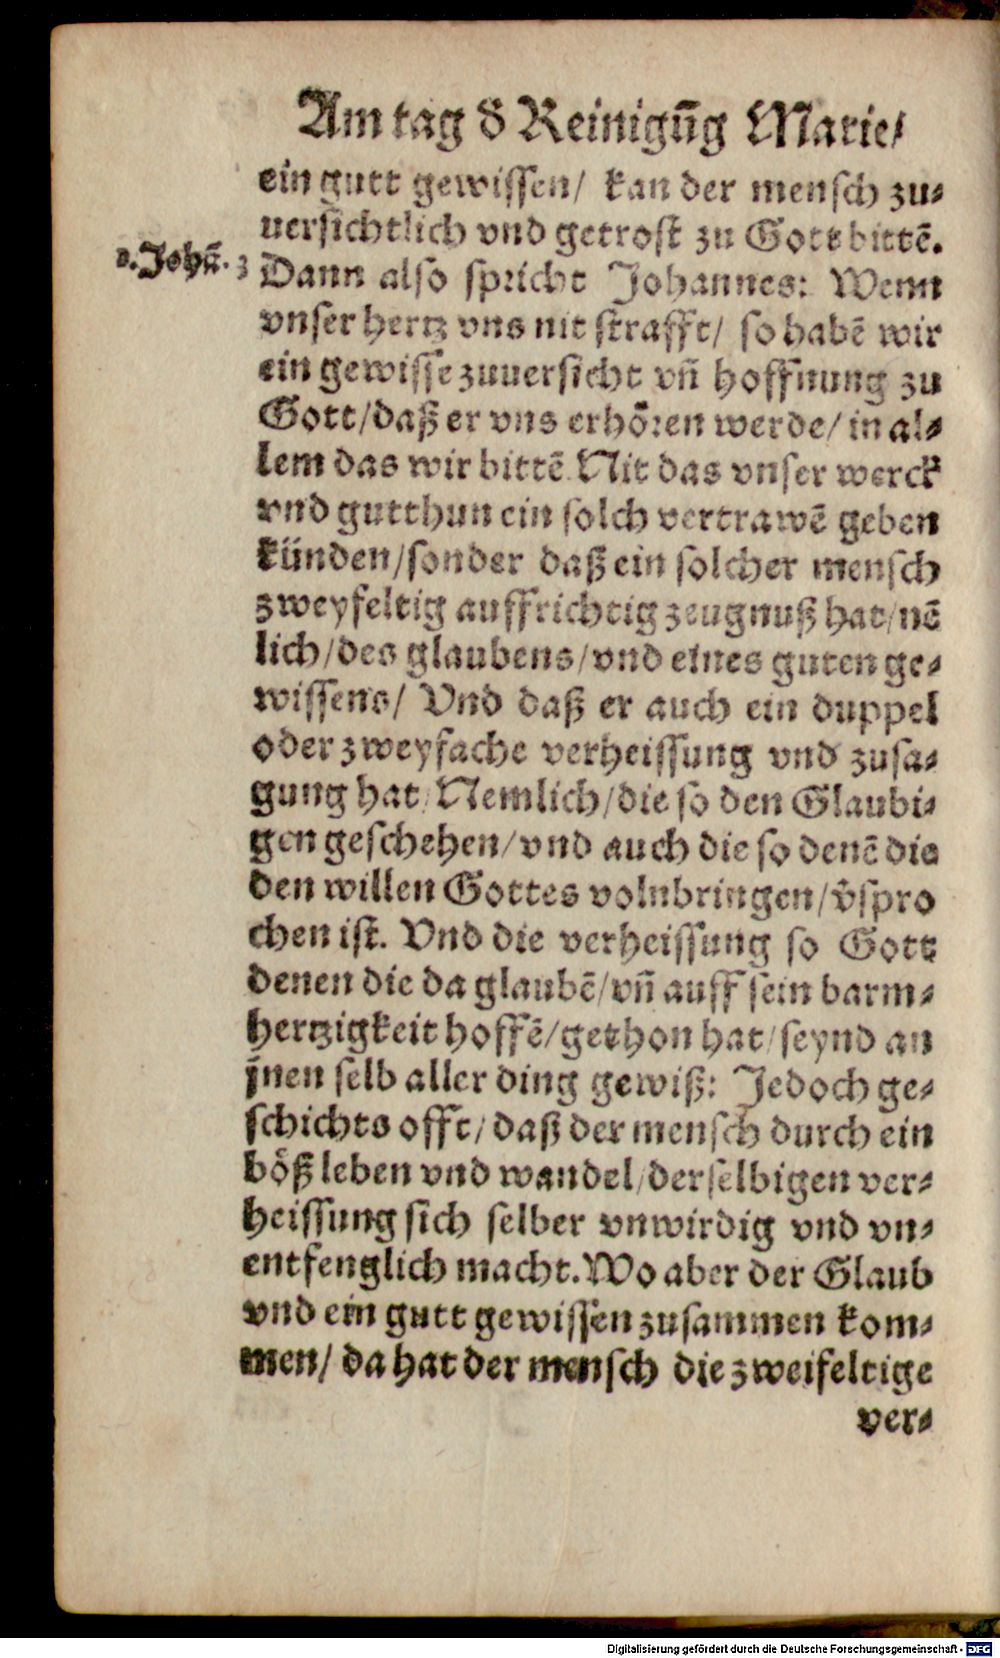 Am tag d̄ Reinigūg Marie/
ein gutt gewissen/ kan der mensch zu-
uersichtlich vnd getrost zu Gott bittē.
1. Johā. 3
Dann also spricht Johannes: Wenn
vnser hertz vns nit strafft/ so habē wir
ein gewisse zuuersicht vñ hoffnung zu
Gott/daß er vns erhören werde/ in al-
lem das wir bittē. Nit das vnser werck
vnd gutthun ein solch vertrawē geben
künden/sonder daß ein solcher mensch
zweyfeltig auffrichtig zeugnuß hat/nē
lich/des glaubens/vnd eines guten ge-
wissens/ Vnd daß er auch ein duppel
oder zweyfache verheissung vnd zusa-
gung hat/Nemlich/die so den Glaubi-
gen geschehen/vnd auch die so denē die
den willen Gottes volnbringen/v̄spro
chen ist. Vnd die verheissung so Gott
denen die da glaubē/vñ auff sein barm-
hertzigkeit hoffē/gethon hat/seynd an
jnen selb aller ding gewiß: Jedoch ge-
schichts offt/daß der mensch durch ein
böß leben vnd wandel/derselbigen ver-
heissung sich selber vnwirdig vnd vn-
entfenglich macht. Wo aber der Glaub
vnd ein gutt gewissen zusammen kom-
men/ da hat der mensch die zweifeltige
ver-
Digitalisierung gefördert durch die Deutsche Forschungsgemeinschaft - DFG